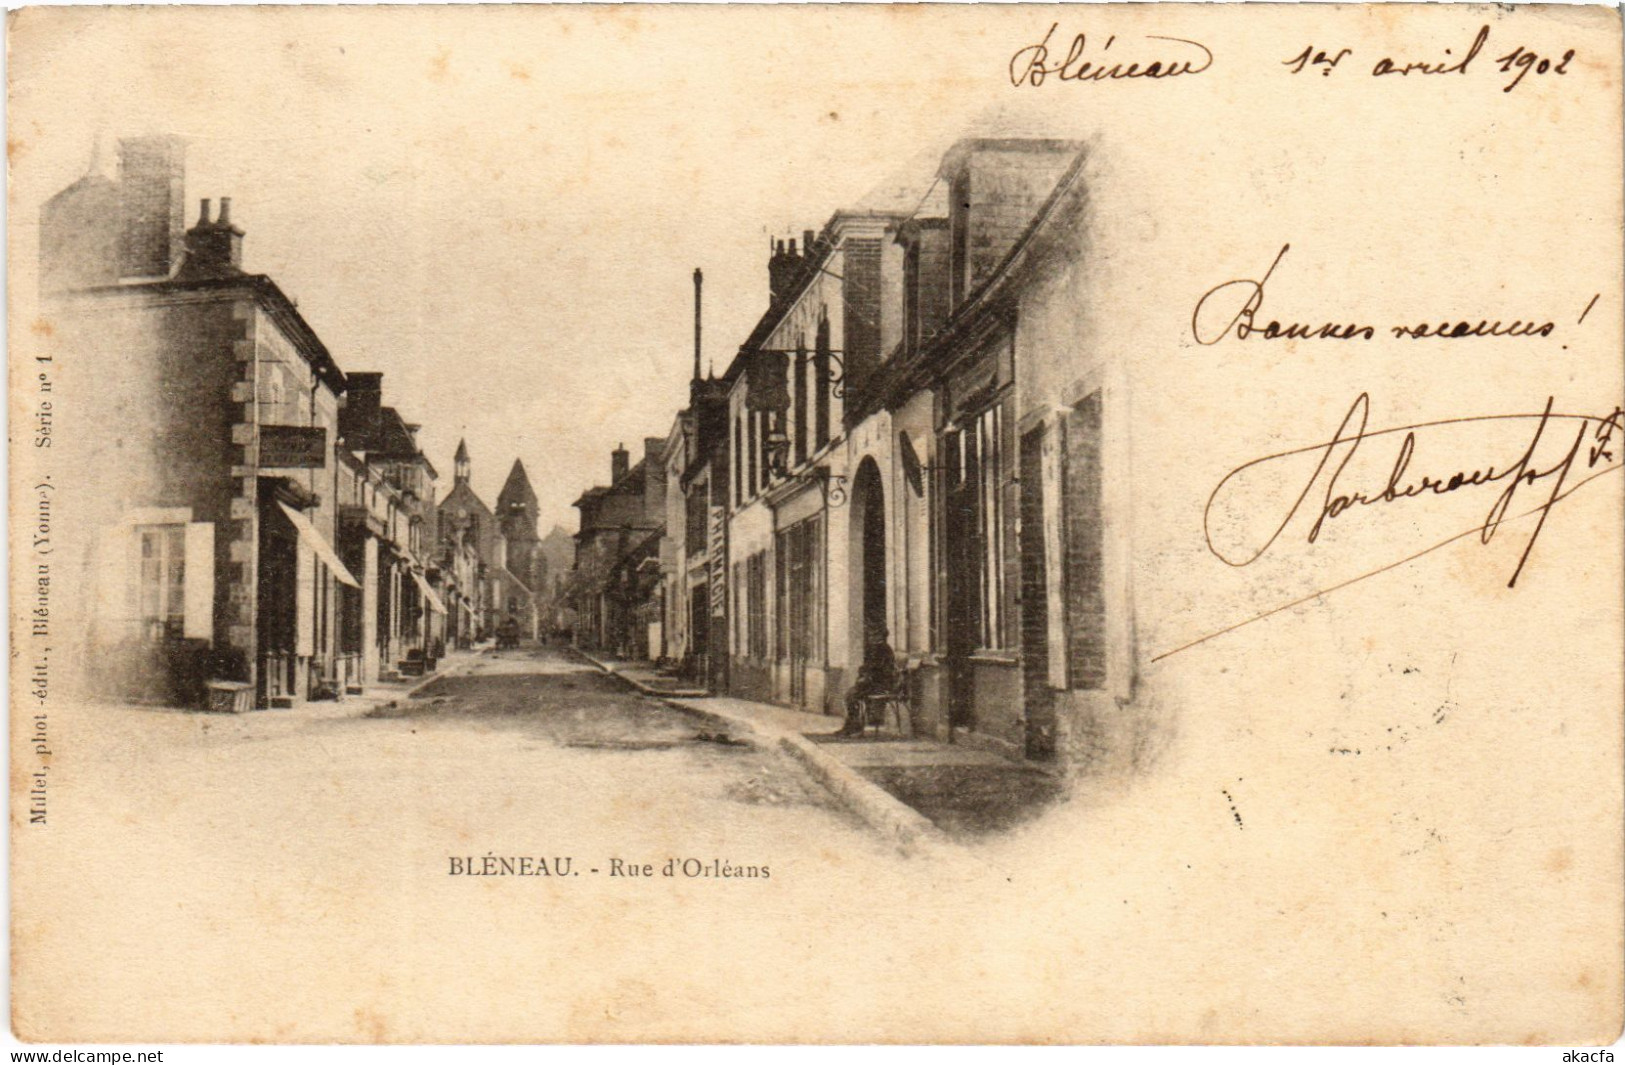 Bléneau 1er avril 1902
Bonnes vacances!
PHARMACIE
Millet, phot-édit., Bléneau (Yonne). Série nº 1
BLÉNEAU. - Rue d'Orléans
delcampe.net
akacfa